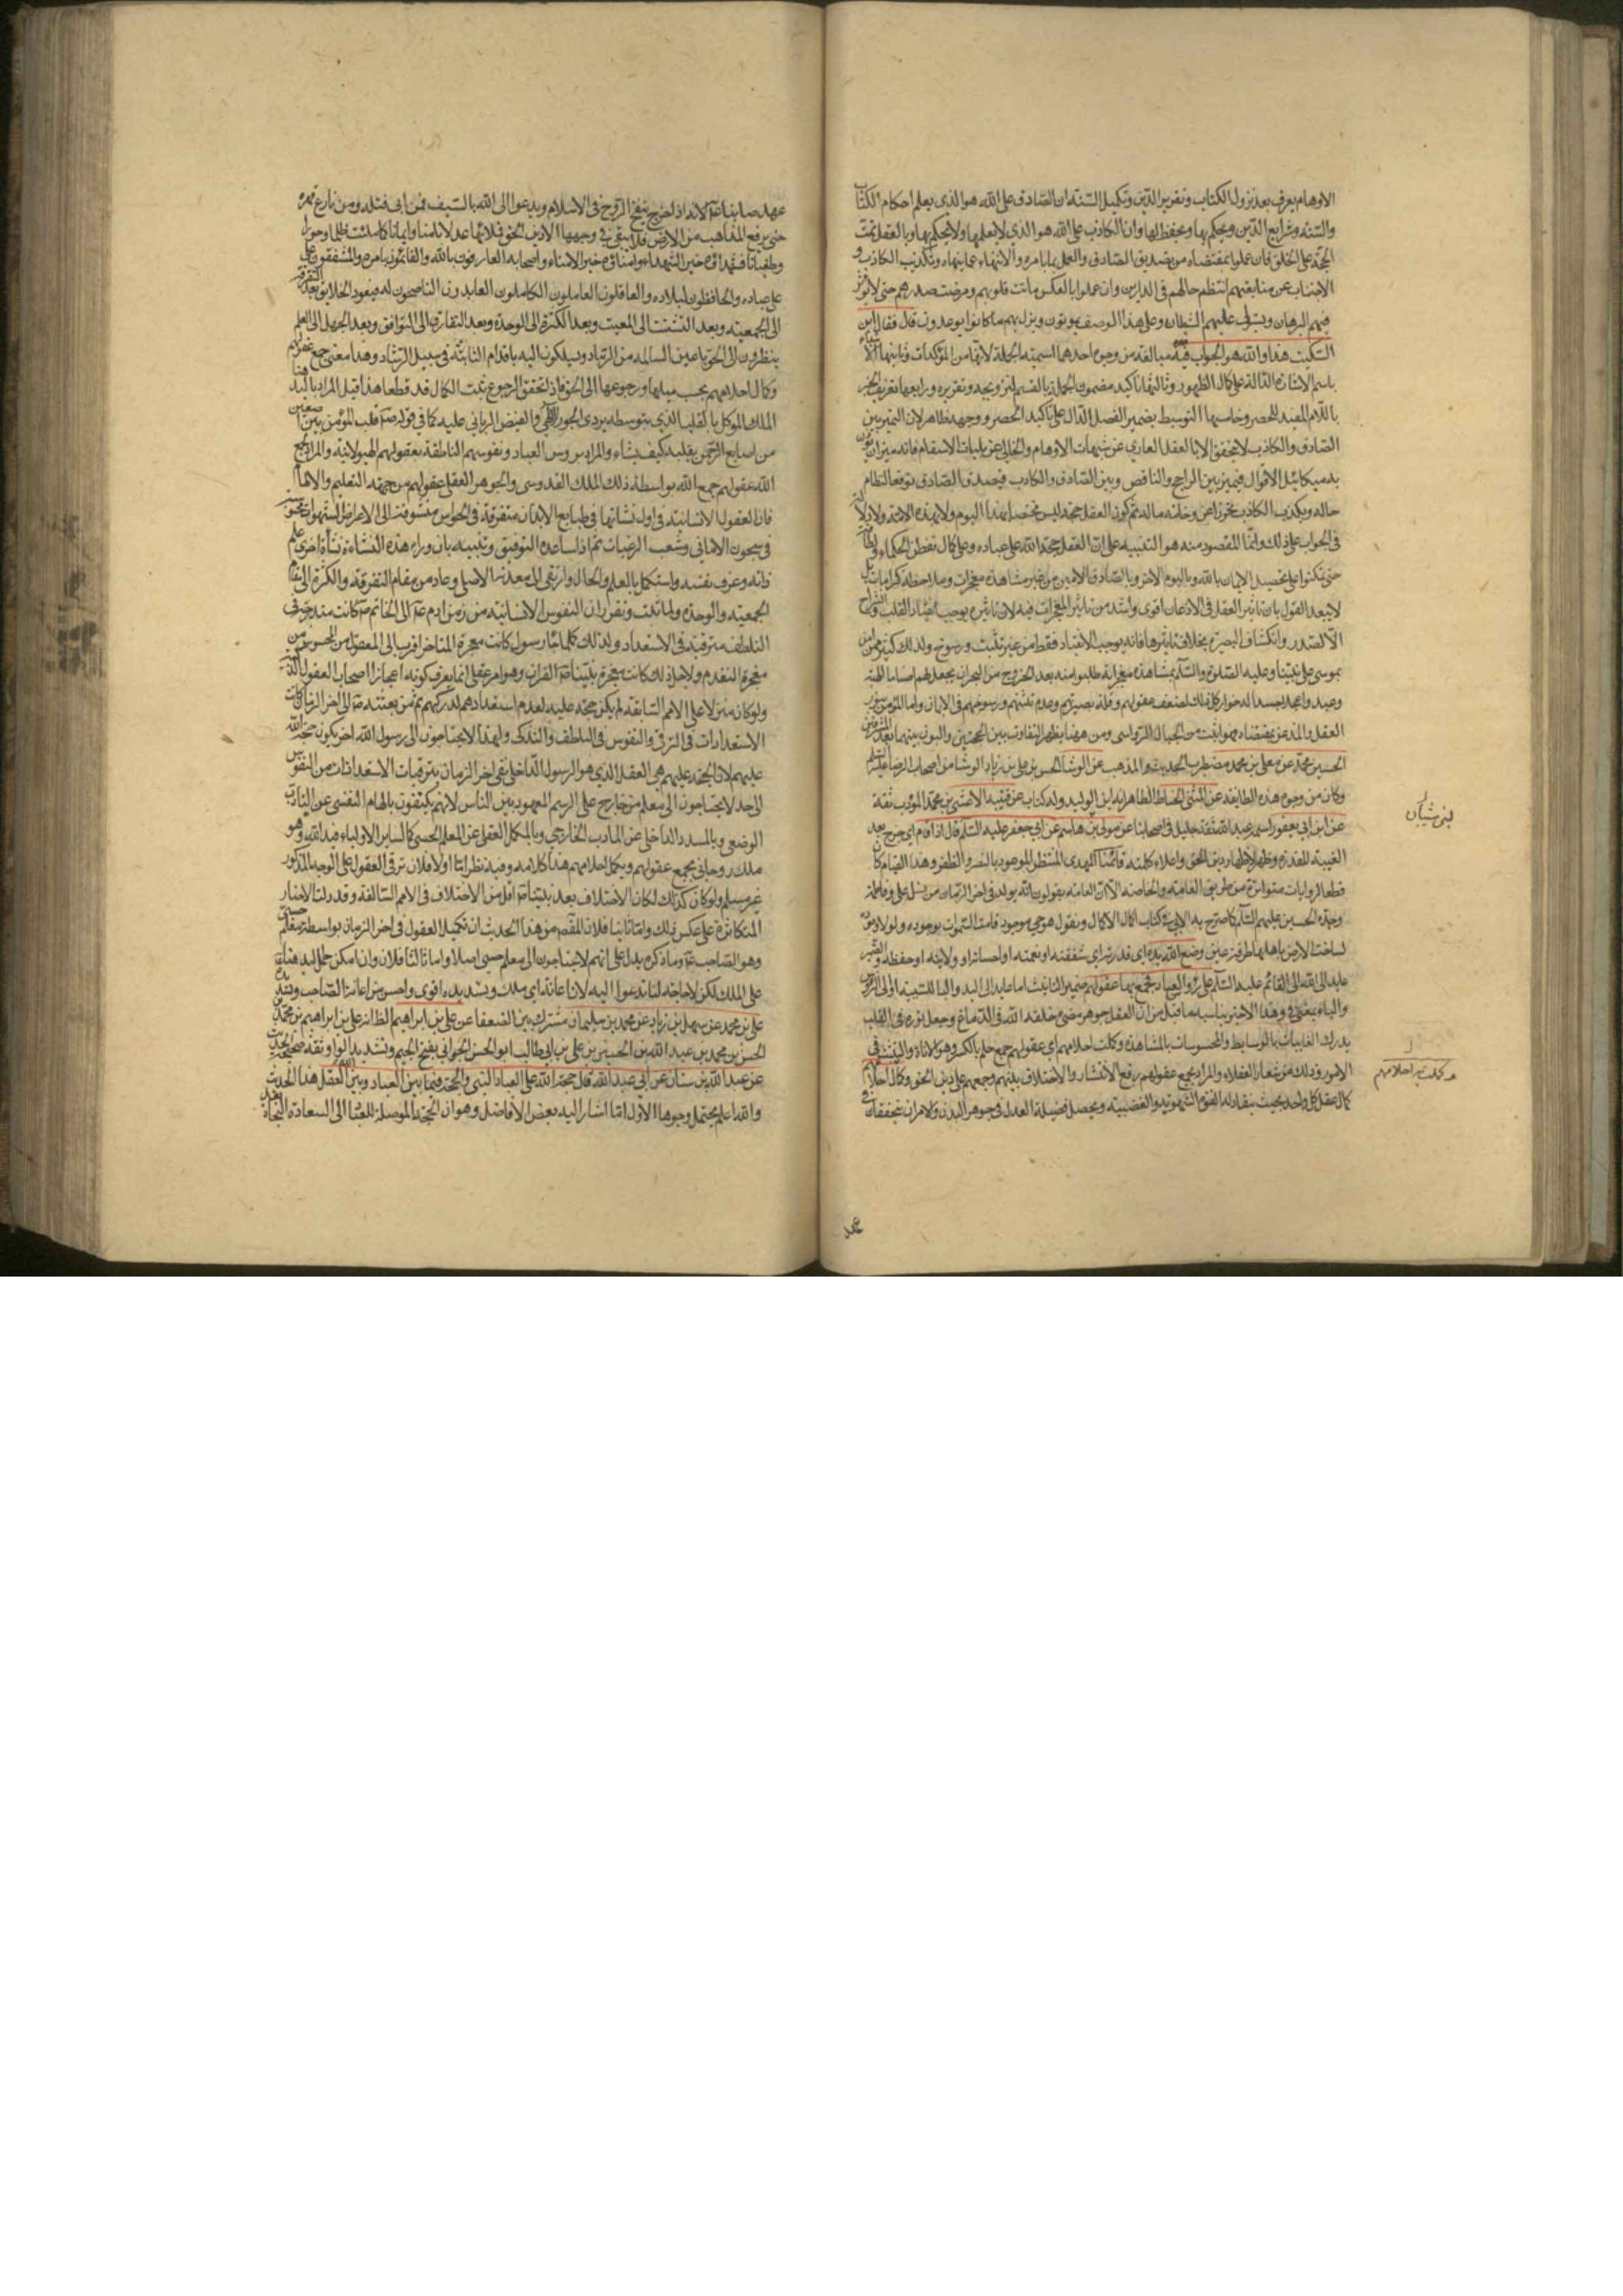 الاوهام يعرف بعد نزول الكتاب وتقرير الدين وتكميل السنة ان الصادق على الله هو الذي يعلم احكام الكتاب
والسنة وشرايع الدين ويحكم بها ويحفظ لها وان الكاذب على الله هو الذي لا يعلمها ولا يحكم بها وبالعقل تمت
الحجة على الخلق فان عملوا بمقتضاه من تصديق الصادق والعمل بما يأمره والانتهاء عما ينهاه وتكذيب الكاذب و
الاجتناب عن متابعتهم انتظم حالهم في الدارين وان عملوا بالعكس ماتت قلوبهم ومرضت صدورهم حتى لا يؤثر
فيهم البرهان ويستولى عليهم الشيطان وعلى هذا الوصف يموتون وينزل بهم ما كانوا يوعدون قال فقال ابن
السكيت هذا والله هو الجواب فيه مبالغة من وجوه احدها اسمية الجملة لانها من المؤكدات وثانيها
باسم الاشارة الدالة على كمال الظهور وثالثها تأكيد مضمون الجملة بالقسم وتقريره ورابعها تعريف الخبر
باللام المفيد للحصر وخامسها التوسيط بضمير الفصل الدال على تأكيد الحصر ووجهه ظاهر لان التميز بين
الصادق والكاذب لا يتحقق الا بالعقل العاري عن شبهات الاوهام والخالي عن بليات الاسقام فانه ميزان يوزن
به مكائيل الاقوال فيميز بين الراجح والناقص وبين الصادق والكاذب فيصدق الصادق توقعا لنظام
حاله ويكذب الكاذب تحرزا عن وخامة ماله ثم كون العقل حجة ليس مختصا بهذا اليوم ولا بهذه الامة ولا دلالة
في الجواب على ذلك وانما المقصود منه هو التنبيه على ان العقل حجة الله على عباده وعلى كمال تفطن الحكماء
حتى تمكنوا على تحصيل الايمان بالله وباليوم الاخر وبالصادق الامين من غير مشاهدة معجزات وملاحظة كرامات بل
لا يبعد القول بان تاثير العقل في الاذعان اقوى واشد من تاثير المعجزات فيه لان تاثيره يوجب القلب وانشراح
الصدر وانكشاف البصيرة بخلاف تاثيرها فانه يوجب الانقياد فقط من غير تثبت ورسوخ ولذلك كثير ممن امن
بموسى على نبينا وعليه الصلوة والسلم بمشاهدة معجزاته طلبوا منه بعد الخروج من البحر ان يجعل لهم اصناما الهة
وعبدوا عجلا جسدا له خوار كل ذلك لضعف عقولهم وقلة بصيرتهم وعدم تثبتهم ورسوخهم في الايمان واما المؤمن بنور
العقل والمذعن بمقتضاه فهو اثبت من الجبال الرواسى ومن ههنا يظهر التفاوت بين الحجتين والبون بينهما بعد المشرقين
الحسين بن محمد عن معلى بن محمد مضطرب الحديث والمذهب عن الوشا الحسن بن على بن زياد الوشا من اصحاب الرضا عليه السلم
وكان من وجوه هذه الطايفة عن المثنى الحناط الظاهر انه ابن الوليد وله كتاب عن قتيبة الاعشى بن محمد المؤدب ثقة
عن ابن ابي يعفور اسمه عبد الله ثقة جليل في اصحابنا عن مولى بني شيبان عن ابي جعفر عليه السلم قال اذا قام اى خرج بعد
الغيبة المقدرة وظهر لاظهار دين الحق واعلاء كلمته قائمنا المهدى المنتظر الموعود بالنصر والظفر وهذا القيام كائن
قطعا لروايات متواترة من طريق العامة والخاصة الا ان العامة يقولون انه يولد في اخر الزمان من نسل علي وفاطمة
وجده الحسين عليهم السلم كما صرح به الابي في كتاب اكمال الاكمال ونقول هو حي موجود قامت السموات بوجوده ولولا وجوده
لساخت الارض باهلها طرفة عين وضع الله يده اى قدرته او شفقته او نعمته او احسانه او ولايته او حفظه والضمير
عايد الى الله او الى القائم عليه السلم على رؤس العباد فجمع بها عقولهم ضمير التانيث اما عايد الى اليد والبا للسببية او الى الرؤس
والباء بمعنى في وهذا الاخير يناسبه ما قيل من ان العقل جوهر مضئ خلقه الله في الدماغ وجعل نوره في القلب
يدرك الغايبات بالوسايط والمحسوسات بالمشاهدة وكملت احلامهم اى عقولهم جمع حلم بالكسر وهو الاناة والتثبت في
الامور وذلك من شعار العقلاء والمراد بجمع عقولهم رفع الانتشار والاختلاف بينهم وجمعهم على دين الحق وكمال احلامهم
كمال عقل كل واحد بحيث ينقاد له القوة الشهوية والغضبية ويحصل فضيلة العدل في جوهر البدن والامران يتحققان في
لبني شيبان
وكملت به احلامهم
عهد
عهد صاحبنا عه لانه اذا خرج ينفخ الروح في الاسلام ويدعوا الى الله بالسيف فمن ابى قتله ومن نازع قهره
حتى يرفع المذاهب من الارض فلا يبقى في وجهها الا دين الحق فيملأها عدلا وامنا وايمانا كما ملئت ظلما وجورا
وطغيانا فشهداؤه خير الشهداء وامناؤه خير الامناء واصحابه العارفون بالله والقائمون بامره والمشفقون على
عباده والحافظون لبلاده والعاقلون العاملون الكاملون العابدون الناصحون له فيعود الخلايق بعد التفرقة
الى الجمعية وبعد التشتت الى المعية وبعد الكثرة الى الوحدة وبعد التفارق الى التوافق وبعد الجهل الى العلم
ينظرون الى الحق باعين السالمة من الرماد ويسلكون اليه باقدام الثابتة في سبيل الرشاد وهذا معنى جمع عقولهم
وكمال احلامهم بحسب ميلها ورجوعها الى الحق فاذا تحقق الرجوع تمت الكمال قد قطعا هذا قيل المراد باليد هنا
الملك الموكل بالقلب الذي بتوسطه يرد الجود الالهي والفيض الرباني عليه كما في قوله صه قلب المؤمن بين اصبعين
من اصابع الرحمن يقلبه كيف يشاء والمراد برؤس العباد ونفوسهم الناطقة بعقولهم الهيولانية والمراد بجمع
الله عقولهم جمع الله بواسطة ذلك الملك القدوسى والجوهر العقلى عقولهم من جهة التعليم والالهام
فان العقول الانسانية في اول نشأتها في طبايع الابدان متفرقة في الحواس متشوقة الى الاغراض والشهوات محبوسة
في سجون الاماني وشعب الرغبات ثم اذا ساعده التوفيق وتنبيه بان وراء هذه النشاءة نشأة اخرى علم
ذاته وعرف نفسه واستكمل بالعلم والحال وارتقى الى معدنه الاصلى وعاد من مقام التفرقة والكثرة الى مقام
الجمعية والوحدة ولما ثبت وتقرر ان النفوس الانسانية من زمن ادم عه الى الخاتم صه كانت متدرجة في
التلطف مترقية في الاستعداد ولذلك كلما جاء رسول كانت معجزة المتاخر اقرب الى المعقول من المحسوس من
معجزة المتقدم ولاجل ذلك كانت معجزة نبينا صه القران وهو امر عقلى انما يعرف كونه اعجازا اصحاب العقول الذكية
ولو كان منزلا على الامم السابقة لم يكن حجة عليهم لعدم استعدادهم لدركهم ثم من بعثته صه الى اخر الزمان كانت
الاستعدادات في الترقي والنفوس في التلطف والتذكى ولهذا لا يحتاجون الى رسول الله اخر يكون حجة الله
عليهم لان الحجة عليهم هي العقل الذي هو الرسول الداخلي ففي اخر الزمان يترقيات الاستعدادات من النفوس
الى حد لا يحتاجون الى معلم من خارج على الرسم المعهود بين الناس لانهم يكتفون بالهام النفسى عن التادب
الوضعي وبالمسدد الداخلى عن المادب الخارجي وبالمكمل العقلى عن المعلم الحسى كما لساير الاولياء فيد الله وهو
ملك روحانى يجمع عقولهم ويكمل احلامهم هذا كلامه وفيه نظر اما اولا فلان ترقى العقول على الوجه المذكور
غير مسلم ولو كان كذلك لكان الاختلاف بعد نبينا صه اقل من الاختلاف في الامم السالفة وقد دلت الاخبار
المتكاثرة على عكس ذلك واما ثانيا فلان المفهوم من هذا الحديث ان تكميل العقول في اخر الزمان بواسطة معلم حسى
وهو الصاحب عه وما ذكره يدل على انهم لا يحتاجون الى معلم حسى اصلا واما ثالثا فلان وان امكن حمل اليد هنا
على الملك لكن لا حاجة لنا تدعوا اليه لان اعانة اى ملك وتسديده اقوى واحسن من اعانة الصاحب وتسديده
على بن محمد عن سهل بن زياد عن محمد بن سليمان مشترك بين الضعفا عن على بن ابراهيم الظاهر انه على بن ابراهيم بن محمد بن
الحسن بن محمد بن عبد الله بن الحسين بن على بن ابي طالب ابو الحسن الجواني بفتح الجيم وتشديد الواو ثقة صحيح الحديث
عن عبد الله بن سنان عن ابي عبد الله قال حجة الله على العباد النبي والحجة فيما بين العباد وبين الله العقل هذا الحديث
والله اعلم يحتمل وجوها الاول ما اشار اليه بعض الافاضل وهو ان الحجة الموصلة للعباد الى السعادة